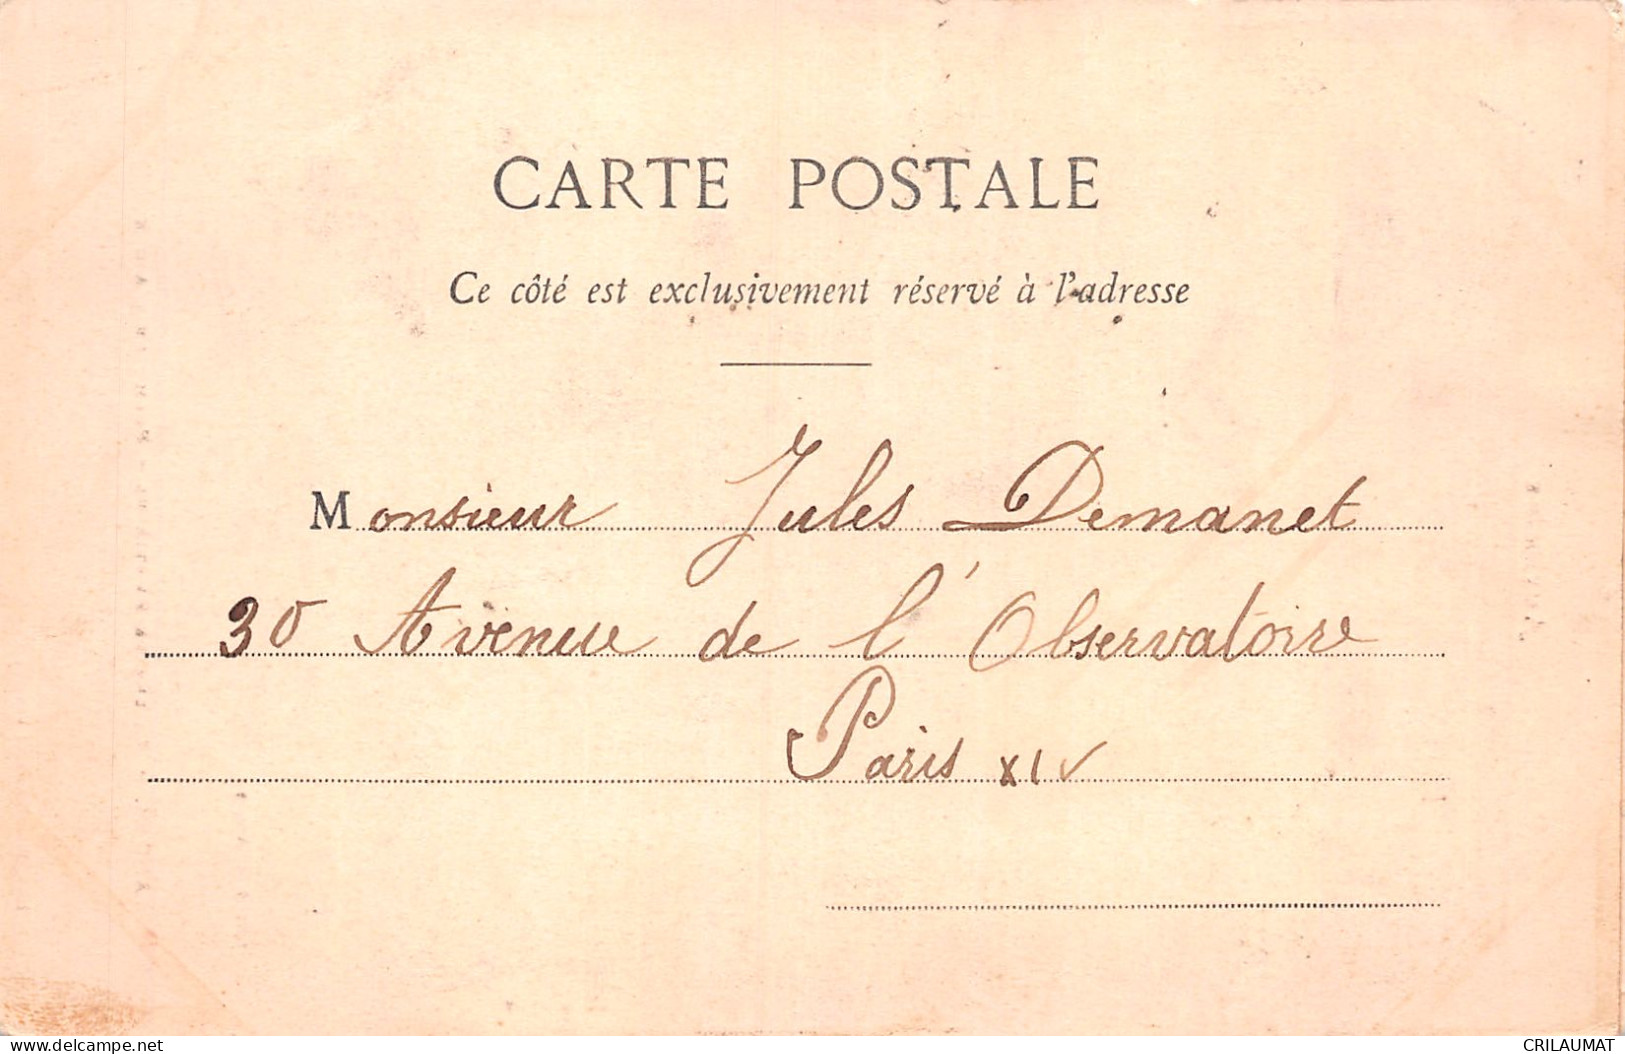 CARTE POSTALE
Ce côté est exclusivement réservé à l'adresse
Monsieur Jules Demanet
30 Avenue de l'Observatoire
Paris XIV
delcampe.net
CRILAUMAT